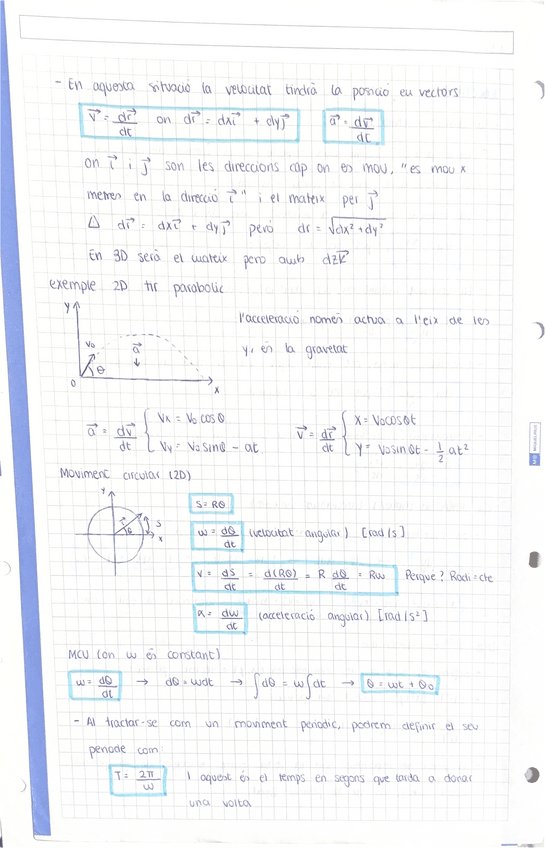 - En aquesta situació la velocitat tindrà la posició en vectors
v⃗ = dr⃗/dt on dr⃗ = dxi⃗ + dyj⃗ a⃗ = dv⃗/dt
on i⃗ i j⃗ són les direccions cap on es mou, "es mou x
metres en la direcció i⃗" i el mateix per j⃗
△ dr⃗ = dxi⃗ + dyj⃗ però dr = √(dx² + dy²)
En 3D serà el mateix però amb dzk⃗
exemple 2D tir parabòlic
y
v₀
a⃗
θ
0
x
l'acceleració només actua a l'eix de les
y, és la gravetat
a⃗ = dv⃗/dt { Vx = V₀ cosθ
Vy = V₀ sinθ - at
v⃗ = dr⃗/dt { X = V₀cosθt
Y = V₀sinθt - 1/2 at²
Moviment circular (2D)
y
r⃗
θ
s
x
S = Rθ
w = dθ/dt (velocitat angular) [rad/s]
v = ds/dt = d(Rθ)/dt = R dθ/dt = Rw Perquè? Radi = cte
α = dw/dt (acceleració angular) [rad/s²]
MCU (on w és constant)
w = dθ/dt → dθ = wdt → ∫dθ = w∫dt → θ = wt + θ₀
- Al tractar-se com un moviment periòdic, podrem definir el seu
període com:
T = 2π/w I aquest és el temps en segons que tarda a donar
una volta